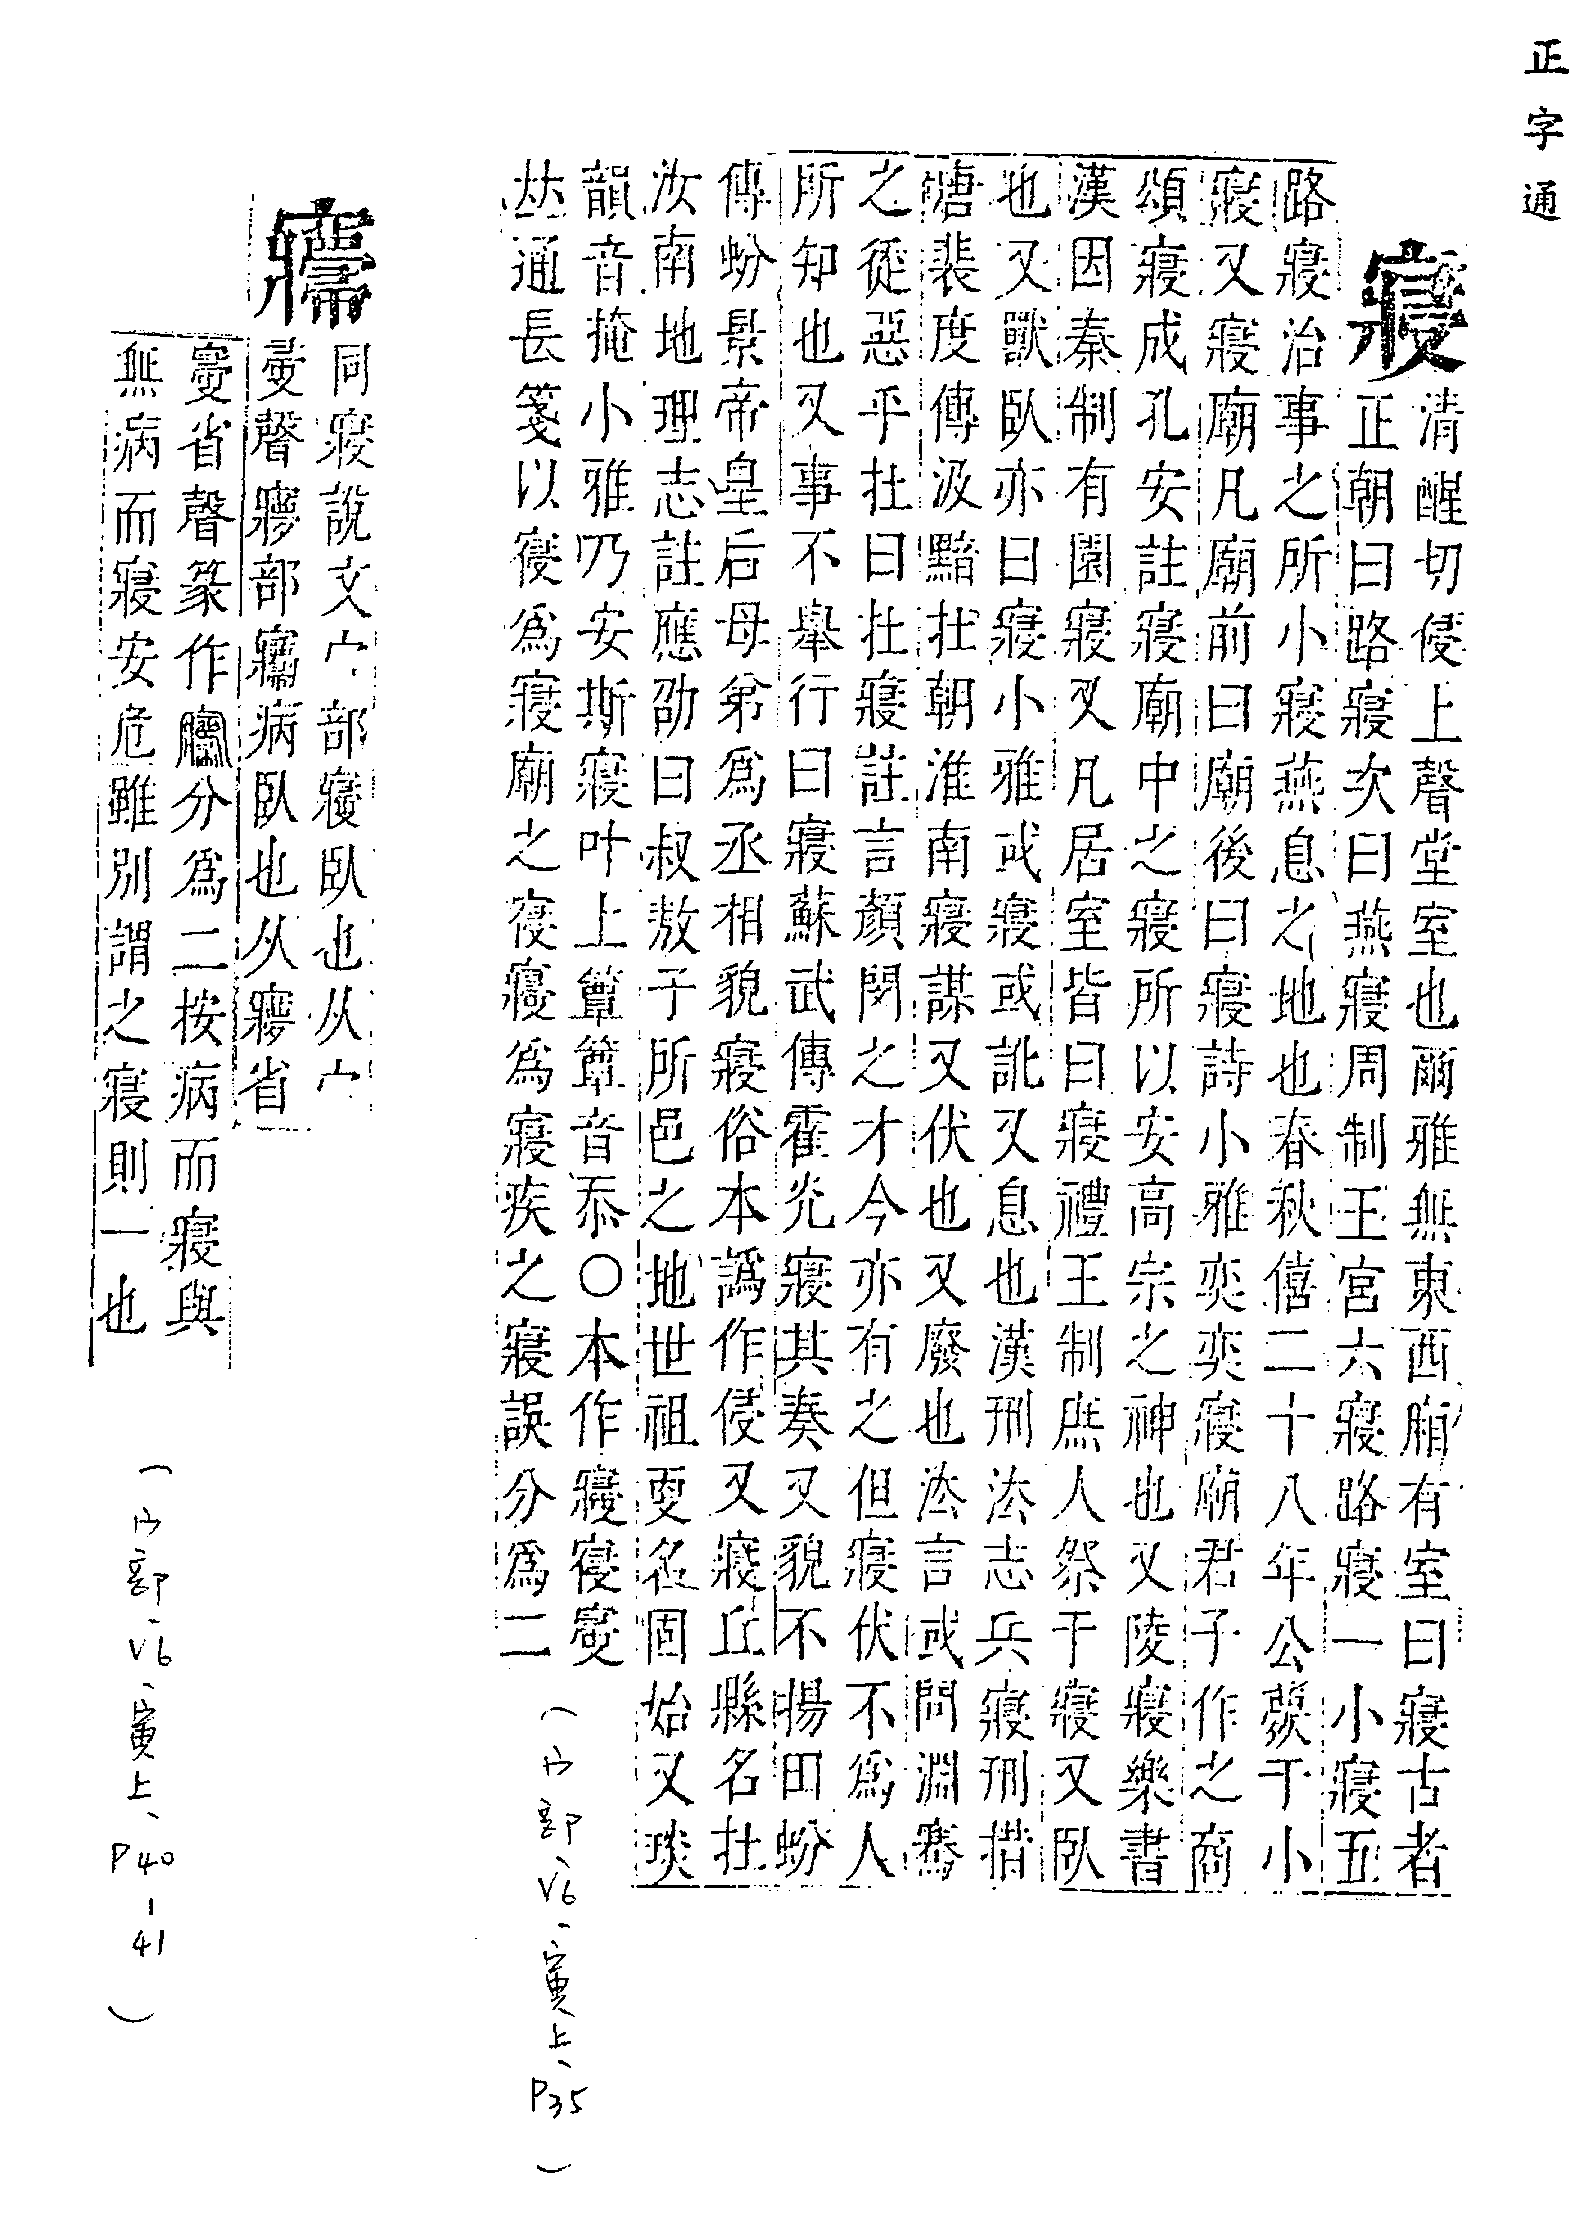 正字通
寢
清醒切侵上聲堂室也爾雅無東西廂有室曰寢古者
正朝曰路寢次曰燕寢周制王宮六寢路寢一小寢五
路寢治事之所小寢燕息之地也春秋僖二十八年公薨于小
寢又寢廟凡廟前曰廟後曰寢詩小雅奕奕寢廟君子作之商
頌寢成孔安註寢廟中之寢所以安高宗之神也又陵寢樂書
漢因秦制有園寢又凡居室皆曰寢禮王制庶人祭于寢又臥
也又獸臥亦曰寢小雅或寢或訛又息也漢刑法志兵寢刑措
唐裴度傳汲黯在朝淮南寢謀又伏也又廢也法言或問淵騫
之徒惡乎在曰在寢註言顏閔之才今亦有之但寢伏不為人
所知也又事不舉行曰寢蘇武傳霍光寢其奏又貌不揚田蚡
傳蚡景帝皇后母弟為丞相貌寢俗本譌作侵又寢丘縣名在
汝南地理志註應劭曰叔敖子所邑之地世祖更名固始又琰
韻音掩小雅乃安斯寢叶上簟簟音忝○本作寢寑㝲
𠀤通長箋以寑為寢廟之寑寢為寢疾之寢誤分為二
(宀部、V6、寅上、P35)
㝲
同寢說文宀部寑臥也从宀
㑴聲㝱部㝲病臥也从㝱省
㝲省聲篆作分為二按病而寢與
無病而寢安危雖別謂之寢則一也
(宀部、V6、寅上、P40-41)